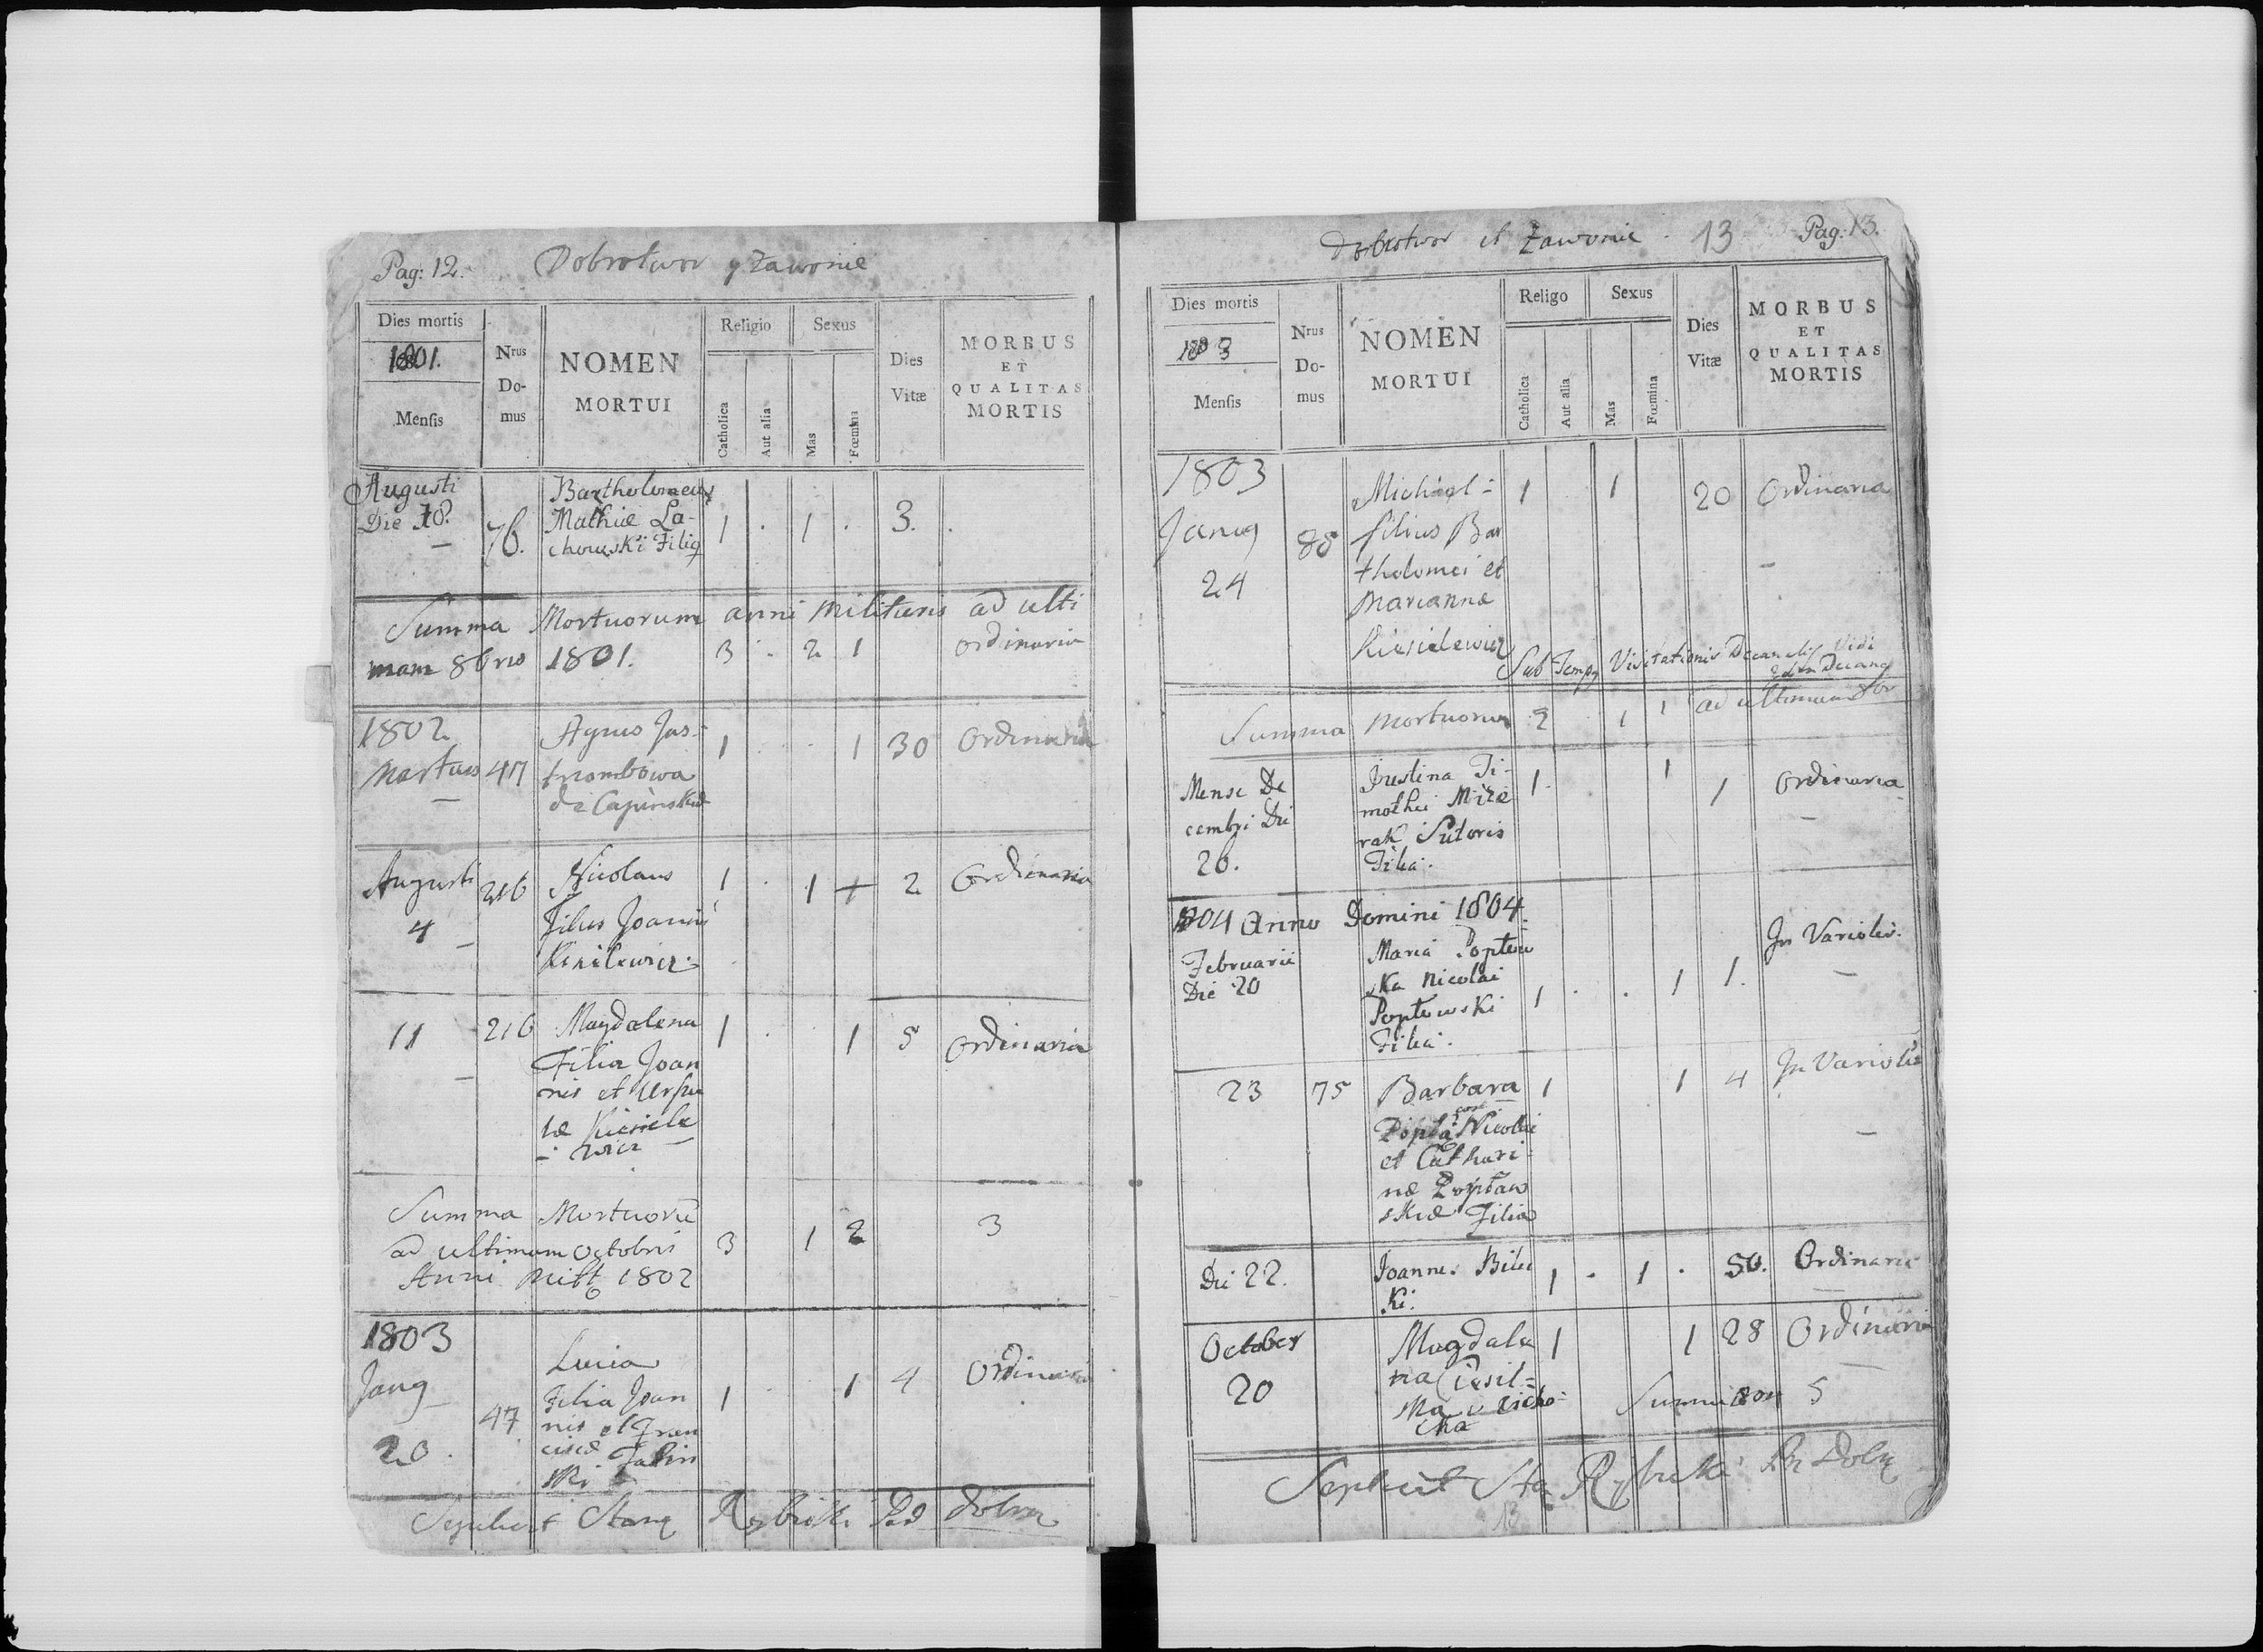 Pag: 12. Dobrotwor y Zawonie
Dies mortis
1801.
Mensis
Nrus
Do-
mus
NOMEN
MORTUI
Religio
Catholica
Aut alia
Sexus
Mas
Fœmina
Dies
Vitæ
MORBUS
ET
QUALITAS
MORTIS
Augusti
Die 18.
76.
Bartholomeus
Mathiæ La-
chowski Filiq
1 . 1 . 3. .
Summa Mortuorum anni militaris ad ulti
mam 8bris 1801. 3 . 2 1 ordinaria
1802
Martius 47
Agnes Jas-
trzombowa
de Capinskie
1 . . 1 30 Ordinaria
Augusti
4
216
Nicolaus
Filius Joannis
Kisilewicz.
1 . 1 + 2 Ordinaria
11 216
Magdalena
Filia Joan
nis et Ursu
læ Kiesiele
wicz
1 . 1 5 Ordinaria
Summa Mortuorū
ad ultimum Octobris
Anni Milit 1802
3 1 2 3
1803
Janq
20.
47
Lucia
Filia Joan
nis et Fran
ciscæ
ski
1 . 1 4 Ordinaria
Sepelivit Stanq Rybicki
Dobrotwor et Zawonie 13 Pag: 13.
Dies mortis
1803
Mensis
Nrus
Do-
mus
NOMEN
MORTUI
Religo
Catholica
Aut alia
Sexus
Mas
Fœmina
Dies
Vitæ
MORBUS
ET
QUALITAS
MORTIS
1803
Janq
24
88
Michael
filius Bar
tholomei et
Mariannæ
Kiesielewicz
1 1 20 Ordinaria
Sub Tempq Visitationis Decanalis Vidi
Decanq
Summa Mortuorum 2 1 1 ad ultimum
Mense De
cembri Die
20.
Justina Ti-
mothei Mize
rak Sutoris
Filia.
1. 1 1 Ordinaria
1804 Anno Domini 1804.
Februarii
Die 20
Maria
ska Nicolai
Poptowski
Filia.
1 . . 1 1. In Variolis.
23 75
Barbara
Nicolai
et Cathari
næ Popław
skie Filia
1 1 4 In Variolis
Die 22.
Joannes Bilec
ki.
1 . 1 . 50. Ordinaria
October
20
Magdale
na
1 1 28 Ordinaria
Summa 1804 5
Sepelivit Sta Rybicki
13